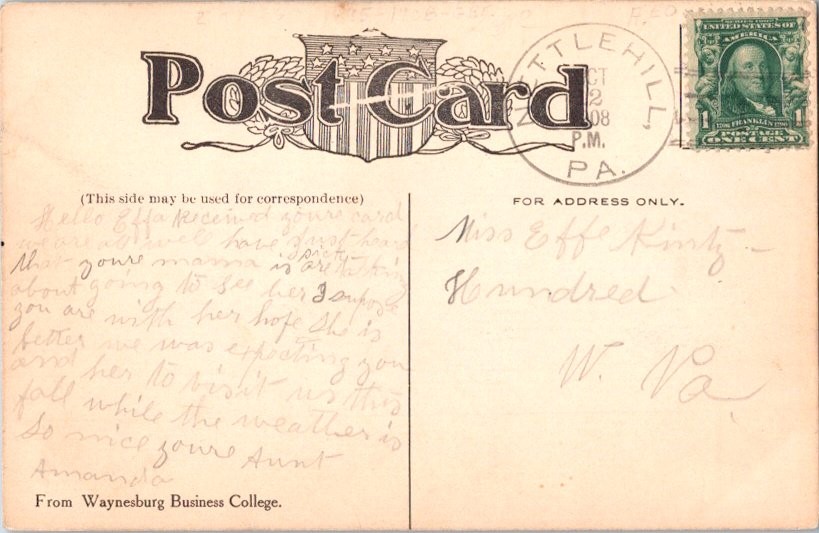 Post Card
NETTLEHILL,
OCT
2
1908
P.M.
PA.
SERIES 1902
UNITED STATES OF
AMERICA
1 1
FRANKLIN
POSTAGE
ONE CENT
(This side may be used for correspondence)
Hello Effa Received youre card
we are all well have just heard
that youre mama is sick are
about going to see her I supose
you are with her hope She is
better we was expecting you
and her to visit us this
fall while the weather is
So nice youre Aunt
Amanda
From Waynesburg Business College.
FOR ADDRESS ONLY.
Miss Effe Kintz
Hundred
W. Va